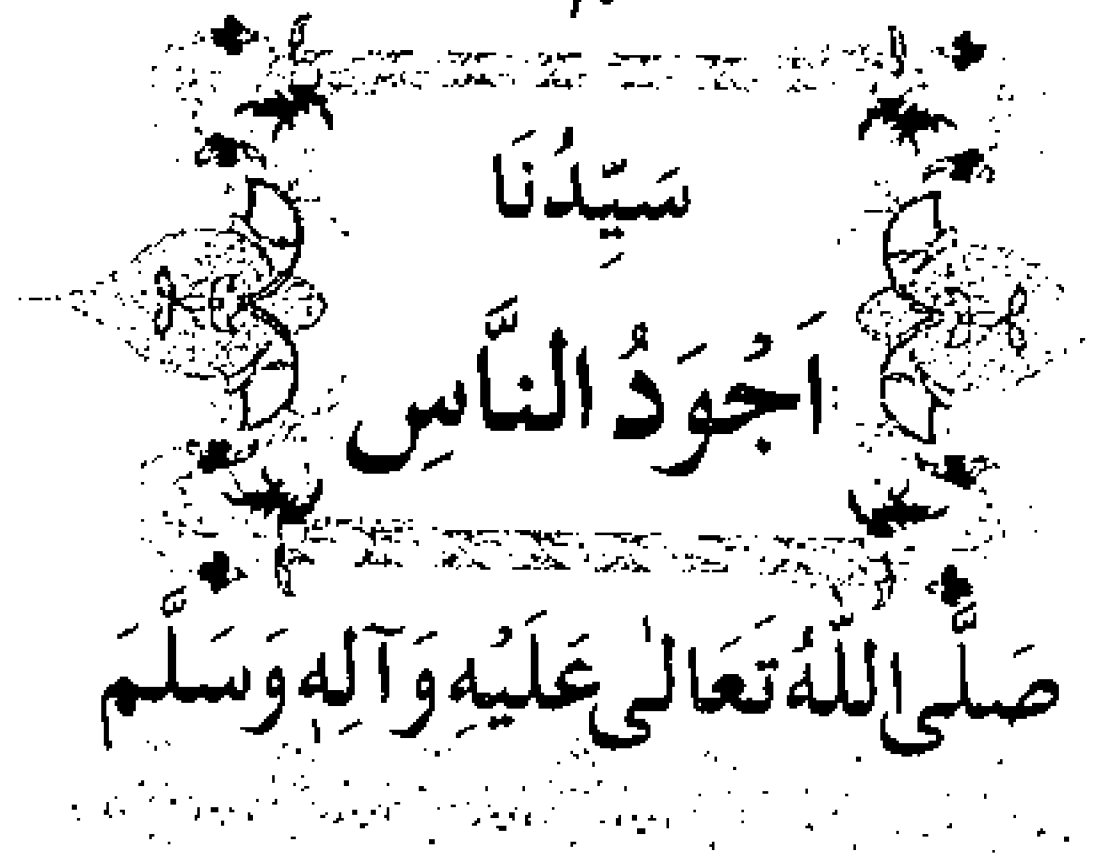 سَيِّدُنَا
اَجْوَدُ النَّاسِ
صَلَّى اللّٰهُ تَعَالٰى عَلَيْهِ وَآلِهٖ وَسَلَّمَ